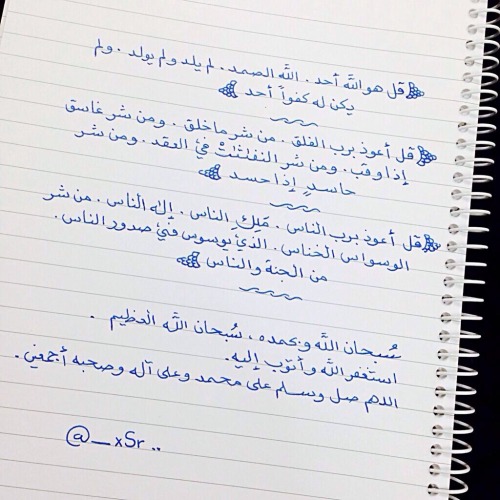 قل هو الله أحد . الله الصمد . لم يلد ولم يولد . ولم
يكن له كفواً أحد
قل أعوذ برب الفلق . من شر ما خلق . ومن شر غاسق
إذا وقب . ومن شر النفاثات في العقد . ومن شر
حاسدٍ إذا حسد
قل أعوذ برب الناس . مَلِكِ الناس . إله الناس . من شر
الوسواس الخناس . الذي يوسوس في صدور الناس .
من الجنة والناس
سُبحان الله وبحمده ، سُبحان الله العظيم .
استغفر الله وأتوب إليه .
اللهم صل وسلم على محمد وعلى آله وصحبه أجمعين .
@_xSr ..